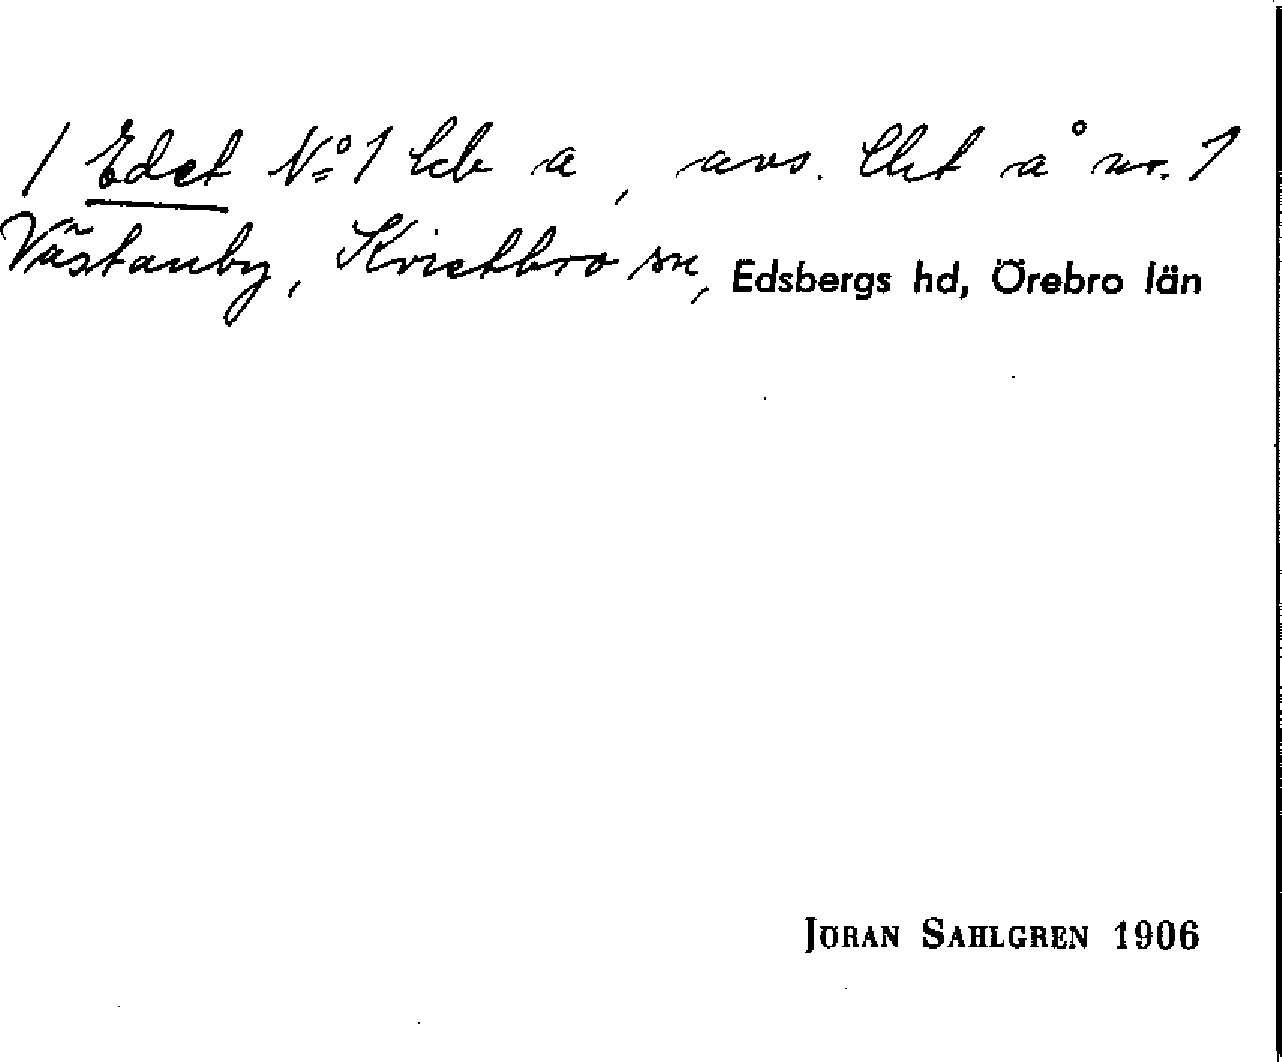 / Edet No 1 Lcb a, avs. Cht å nr. 1
Västanby, Kvistbro sn, Edsbergs hd, Örebro län
JÖRAN SAHLGREN 1906